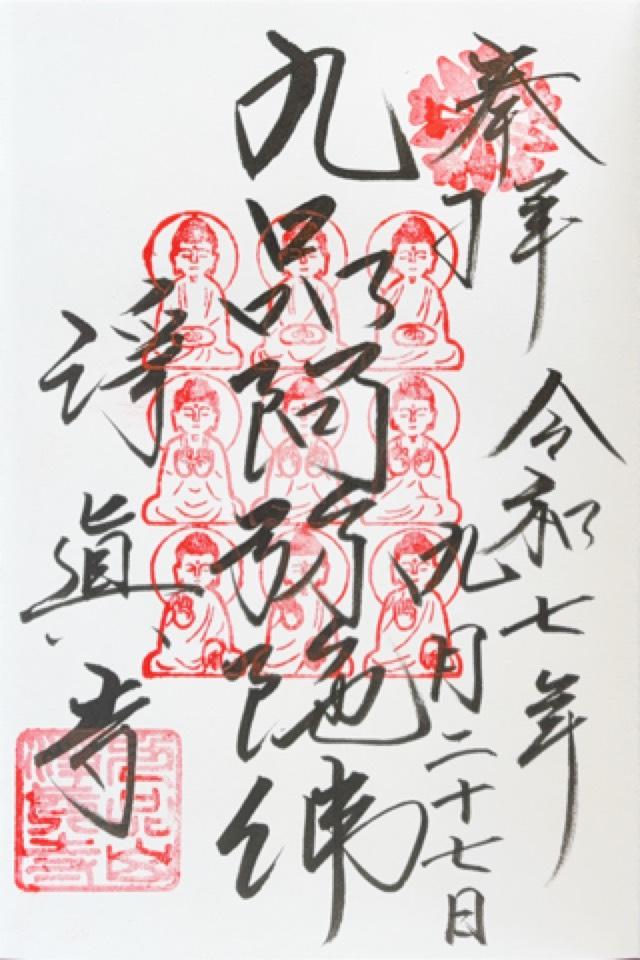 奉拝
令和七年
九月二十七日
九品阿弥陀佛
浄真寺